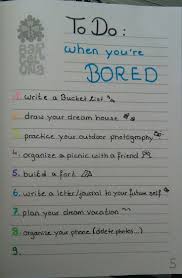 To Do:
when you're
BORED
BARCELONA
1. write a Bucket List
2. draw your dream house
3. practice your outdoor photography
4. organize a picnic with a friend
5. build a fort
6. write a letter/journal to your future self
7. plan your dream vacation
8. organise your phone (delete photos...)
9.
5